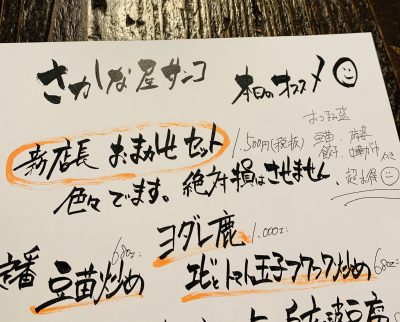 さかしな屋サンコ
本日のオススメ
新店長 おまかせ セット
1.500円(税抜)
色々でます。絶対損はさせません
おつまみ盛
豆苗、麻婆
餃子、
超お得
ヨダレ鹿 1.000-
定番 豆苗炒め 680-
エビとトマト玉子フワフワ炒め 680-
豆腐